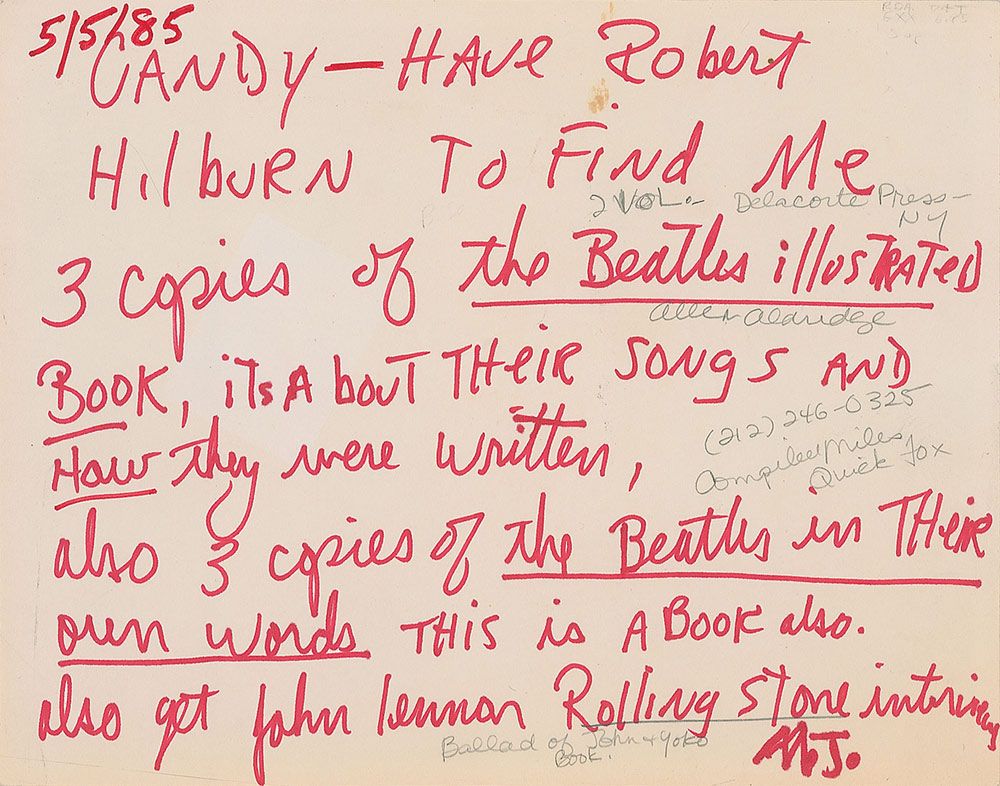 5/5/85
CANDY — HAVE Robert
HilbURN To Find Me
2 VOL. - Delacorte Press -
NY
3 copies of the Beatles illustRATed
Allen Aldridge
BOOK, iTs AbouT THeiR SONgS AND
(212) 246-0325
HOW they were written,
Compiled Miles,
Quick Fox
also 3 copies of the Beatles in THeiR
own words THiS is A BOOK also.
also get John lennon Rolling STone interview
Ballad of John + Yoko
Book.
M.J.